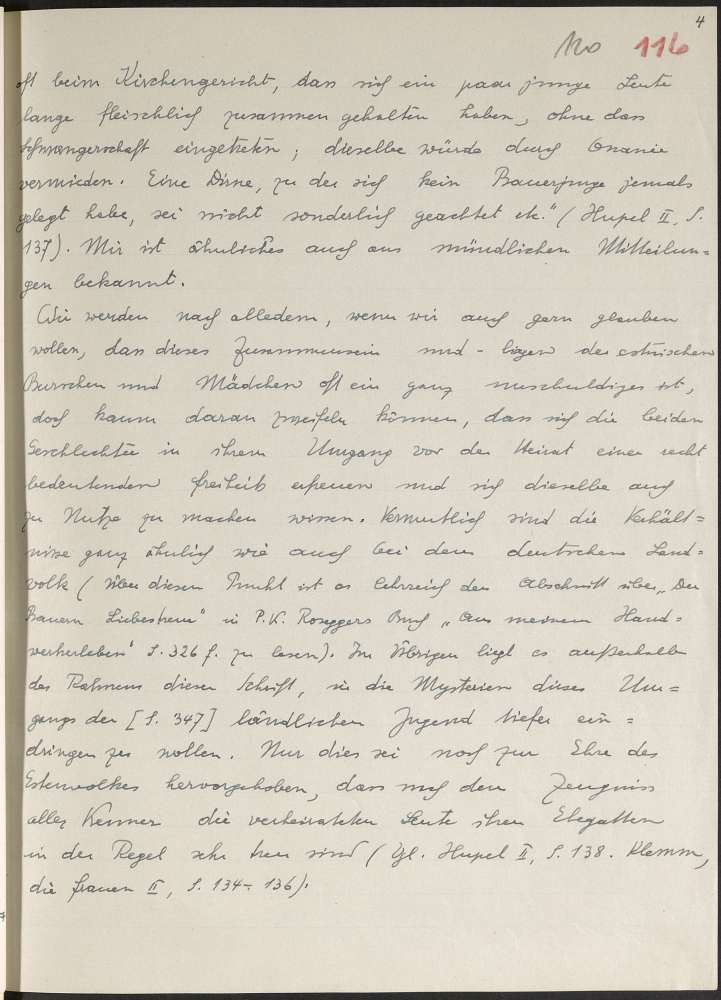 4
120 116
oft beim Kirchengericht, dass sich ein paar junge Leute
lange fleischlich zusammen gehalten haben, ohne dass
Schwangerschaft eingetreten; dieselbe würde durch Onanie
vermieden. Eine Dirne, zu der sich kein Bauerjunge jemals
gelegt habe, sei nicht sonderlich geachtet etc." (Hupel II, S.
137). Mir ist ähnliches auch aus mündlichen Mitteilun=
gen bekannt.
Wir werden nach alledem, wenn wir auch gern glauben
wollen, dass dieses Zusammensein und - liegen der estnischen
Burschen und Mädchen oft ein ganz unschuldiges ist,
doch kaum daran zweifeln können, dass sich die beiden
Geschlechter in ihrem Umgang vor der Heirat einer recht
bedeutenden Freiheit erfreuen und sich dieselbe auch
zu Nutze zu machen wissen. Vermutlich sind die Verhält=
nisse ganz ähnlich wie auch bei dem deutschen Land=
volk (über diesen Punkt ist es lehrreich den Abschnitt über „Der
Bauern Liebestreu" in P. K. Roseggers Buch „Aus meinem Hand=
werkerleben" S. 326 f. zu lesen). Im Übrigen liegt es außerhalb
des Rahmens dieser Schrift, in die Mysterien dieses Um=
gangs der [S. 347] ländlichen Jugend tiefer ein=
dringen zu wollen. Nur dies sei noch zur Ehre des
Estenvolkes hervorgehoben, dass nach dem Zeugniss
aller Kenner die verheirateten Leute ihren Ehegatten
in der Regel sehr treu sind (Vgl. Hupel II, S. 138. Klemm,
die Frauen II, S. 134-136).